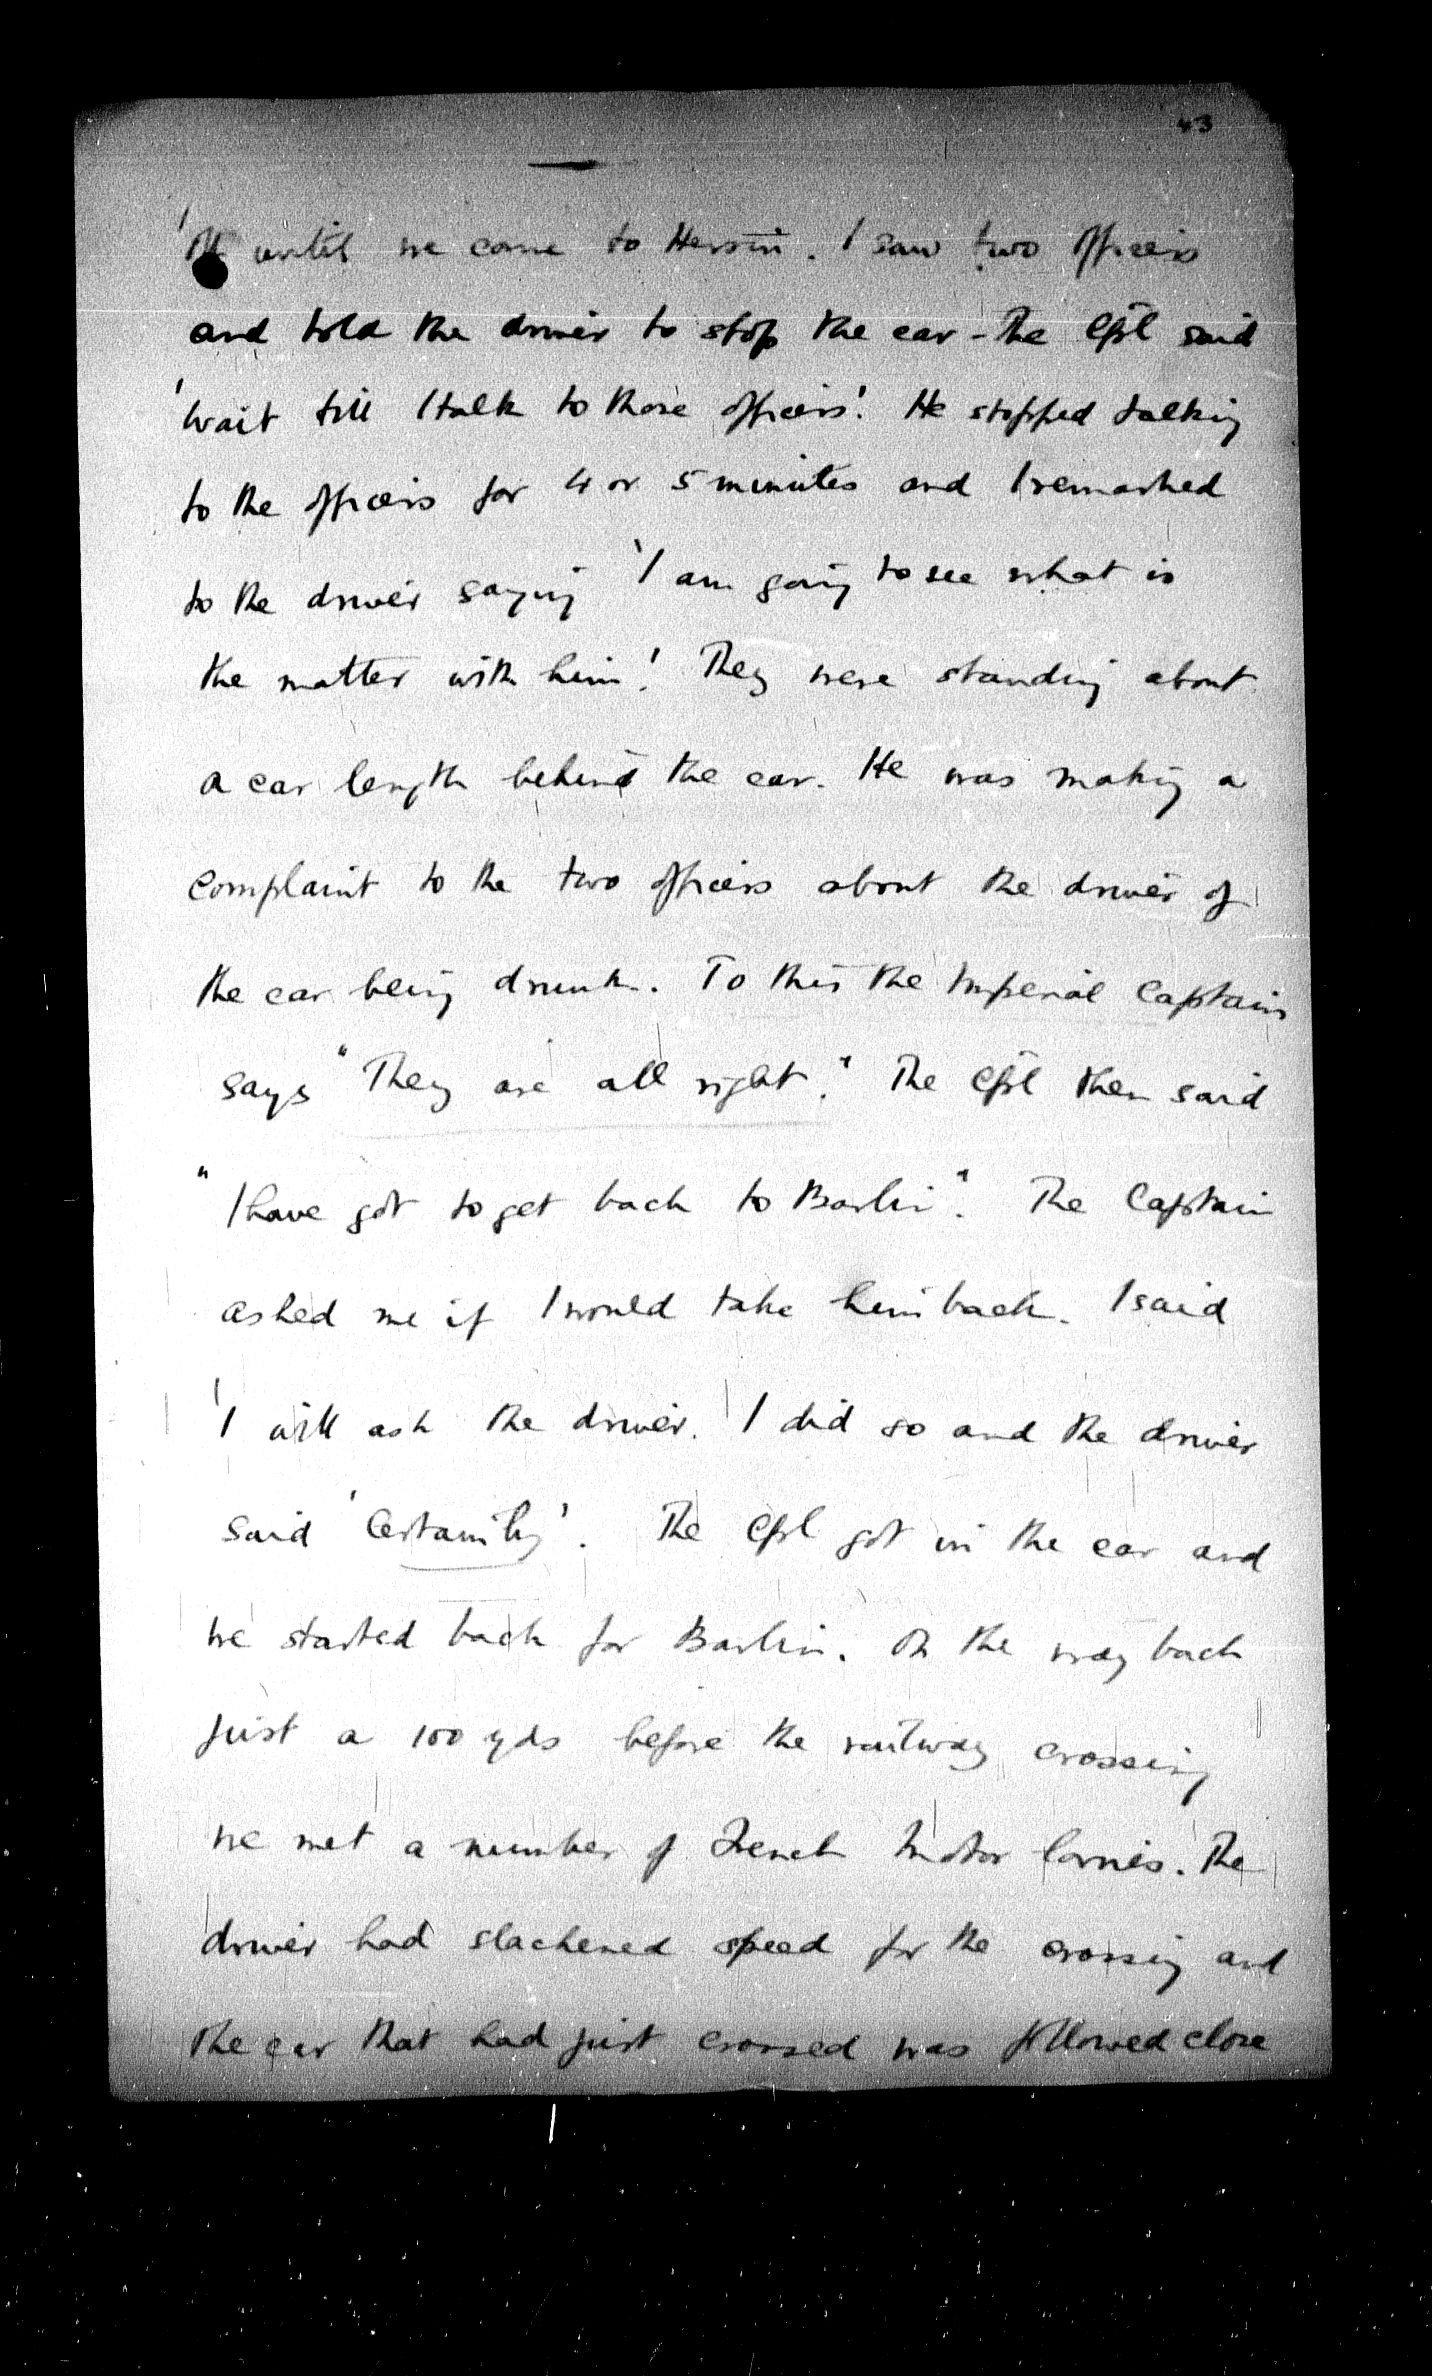 43
until we came to Hersin. I saw two officers
and told the driver to stop the car - The Cpl said
'Wait till I talk to those officers'. He stopped talking
to the officers for 4 or 5 minutes and I remarked
to the driver saying 'I am going to see what is
the matter with him'. They were standing about
a car length behind the car. He was making a
complaint to the two officers about the driver of
the car being drunk. To this the Imperial Captain
says "They are all right." The Cpl then said
"I have got to get back to Barlin". The Captain
asked me if I would take him back. I said
'I will ask the driver.' I did so and the driver
said 'Certainly'. The Cpl got in the car and
we started back for Barlin. On the way back
just a 100 yds before the railway crossing
we met a number of French motor lorries. The
driver had slackened speed for the crossing and
the car that had just crossed was followed close